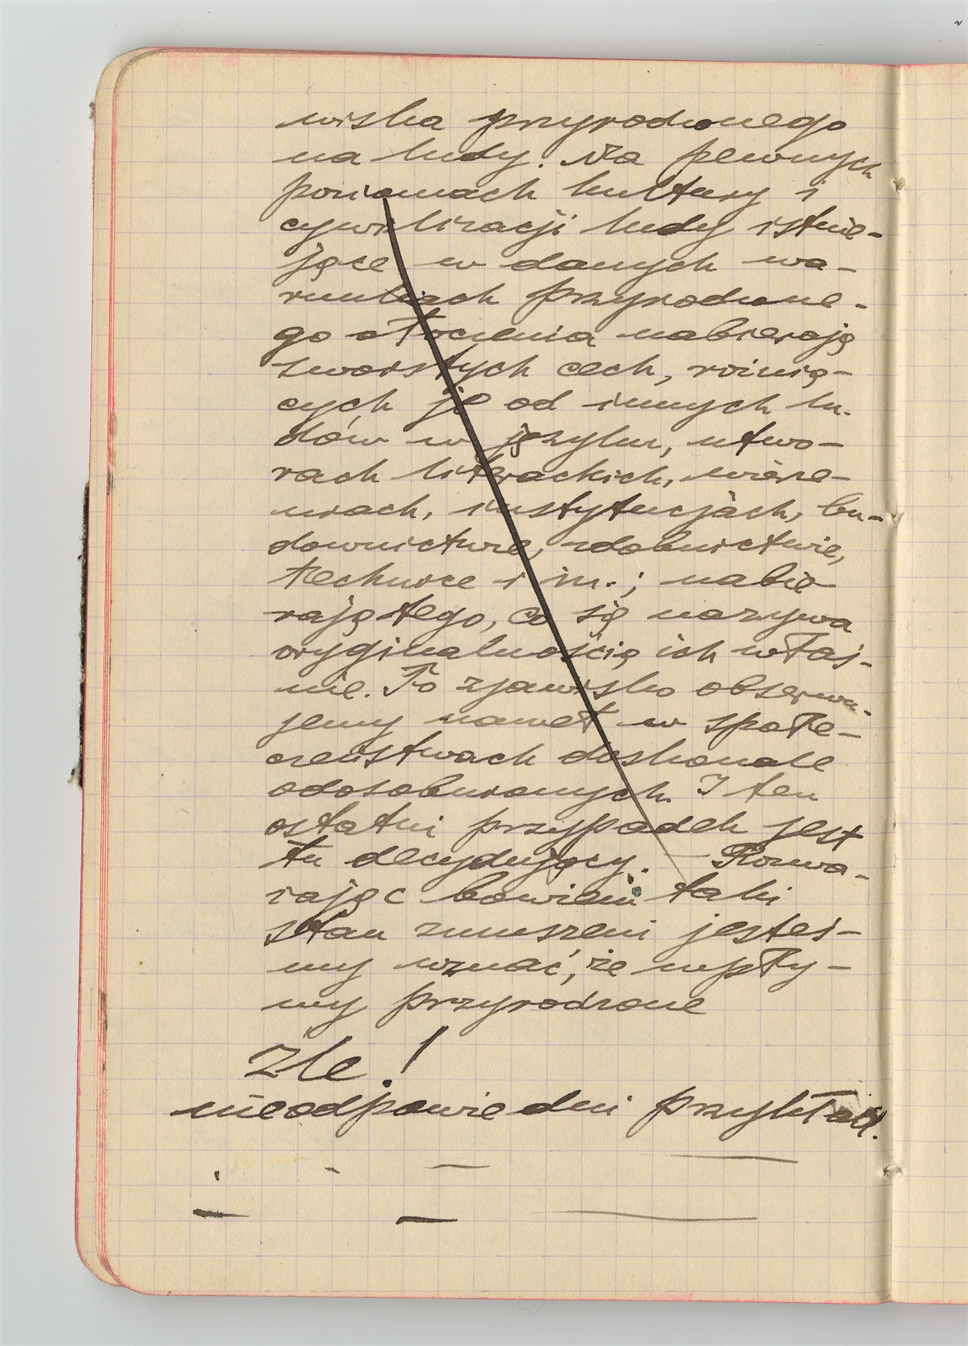 wiska przyrodzonego
na ludy. Na pewnych
poziomach kultury i
cywilizacji ludy istnie-
jące w danych wa-
runkach przyrodzone-
go otoczenia nabierają
swoistych cech, różnią-
cych je od innych lu-
dów w języku, utwo-
rach literackich, wierze-
niach, instytucjach, bu-
downictwie, zdobnictwie,
technice i in.; nabie-
rają tego, co się nazywa
oryginalnością ich właś-
nie. To zjawisko obserwu-
jemy nawet w społe-
czeństwach doskonale
odosobnionych. I ten
ostatni przypadek jest
tu decydujący. — Rozwa-
żając bowiem taki
stan zmuszeni jesteś-
my uznać, że wpły-
wy przyrodzone
Źle!
nieodpowiedni przykład.